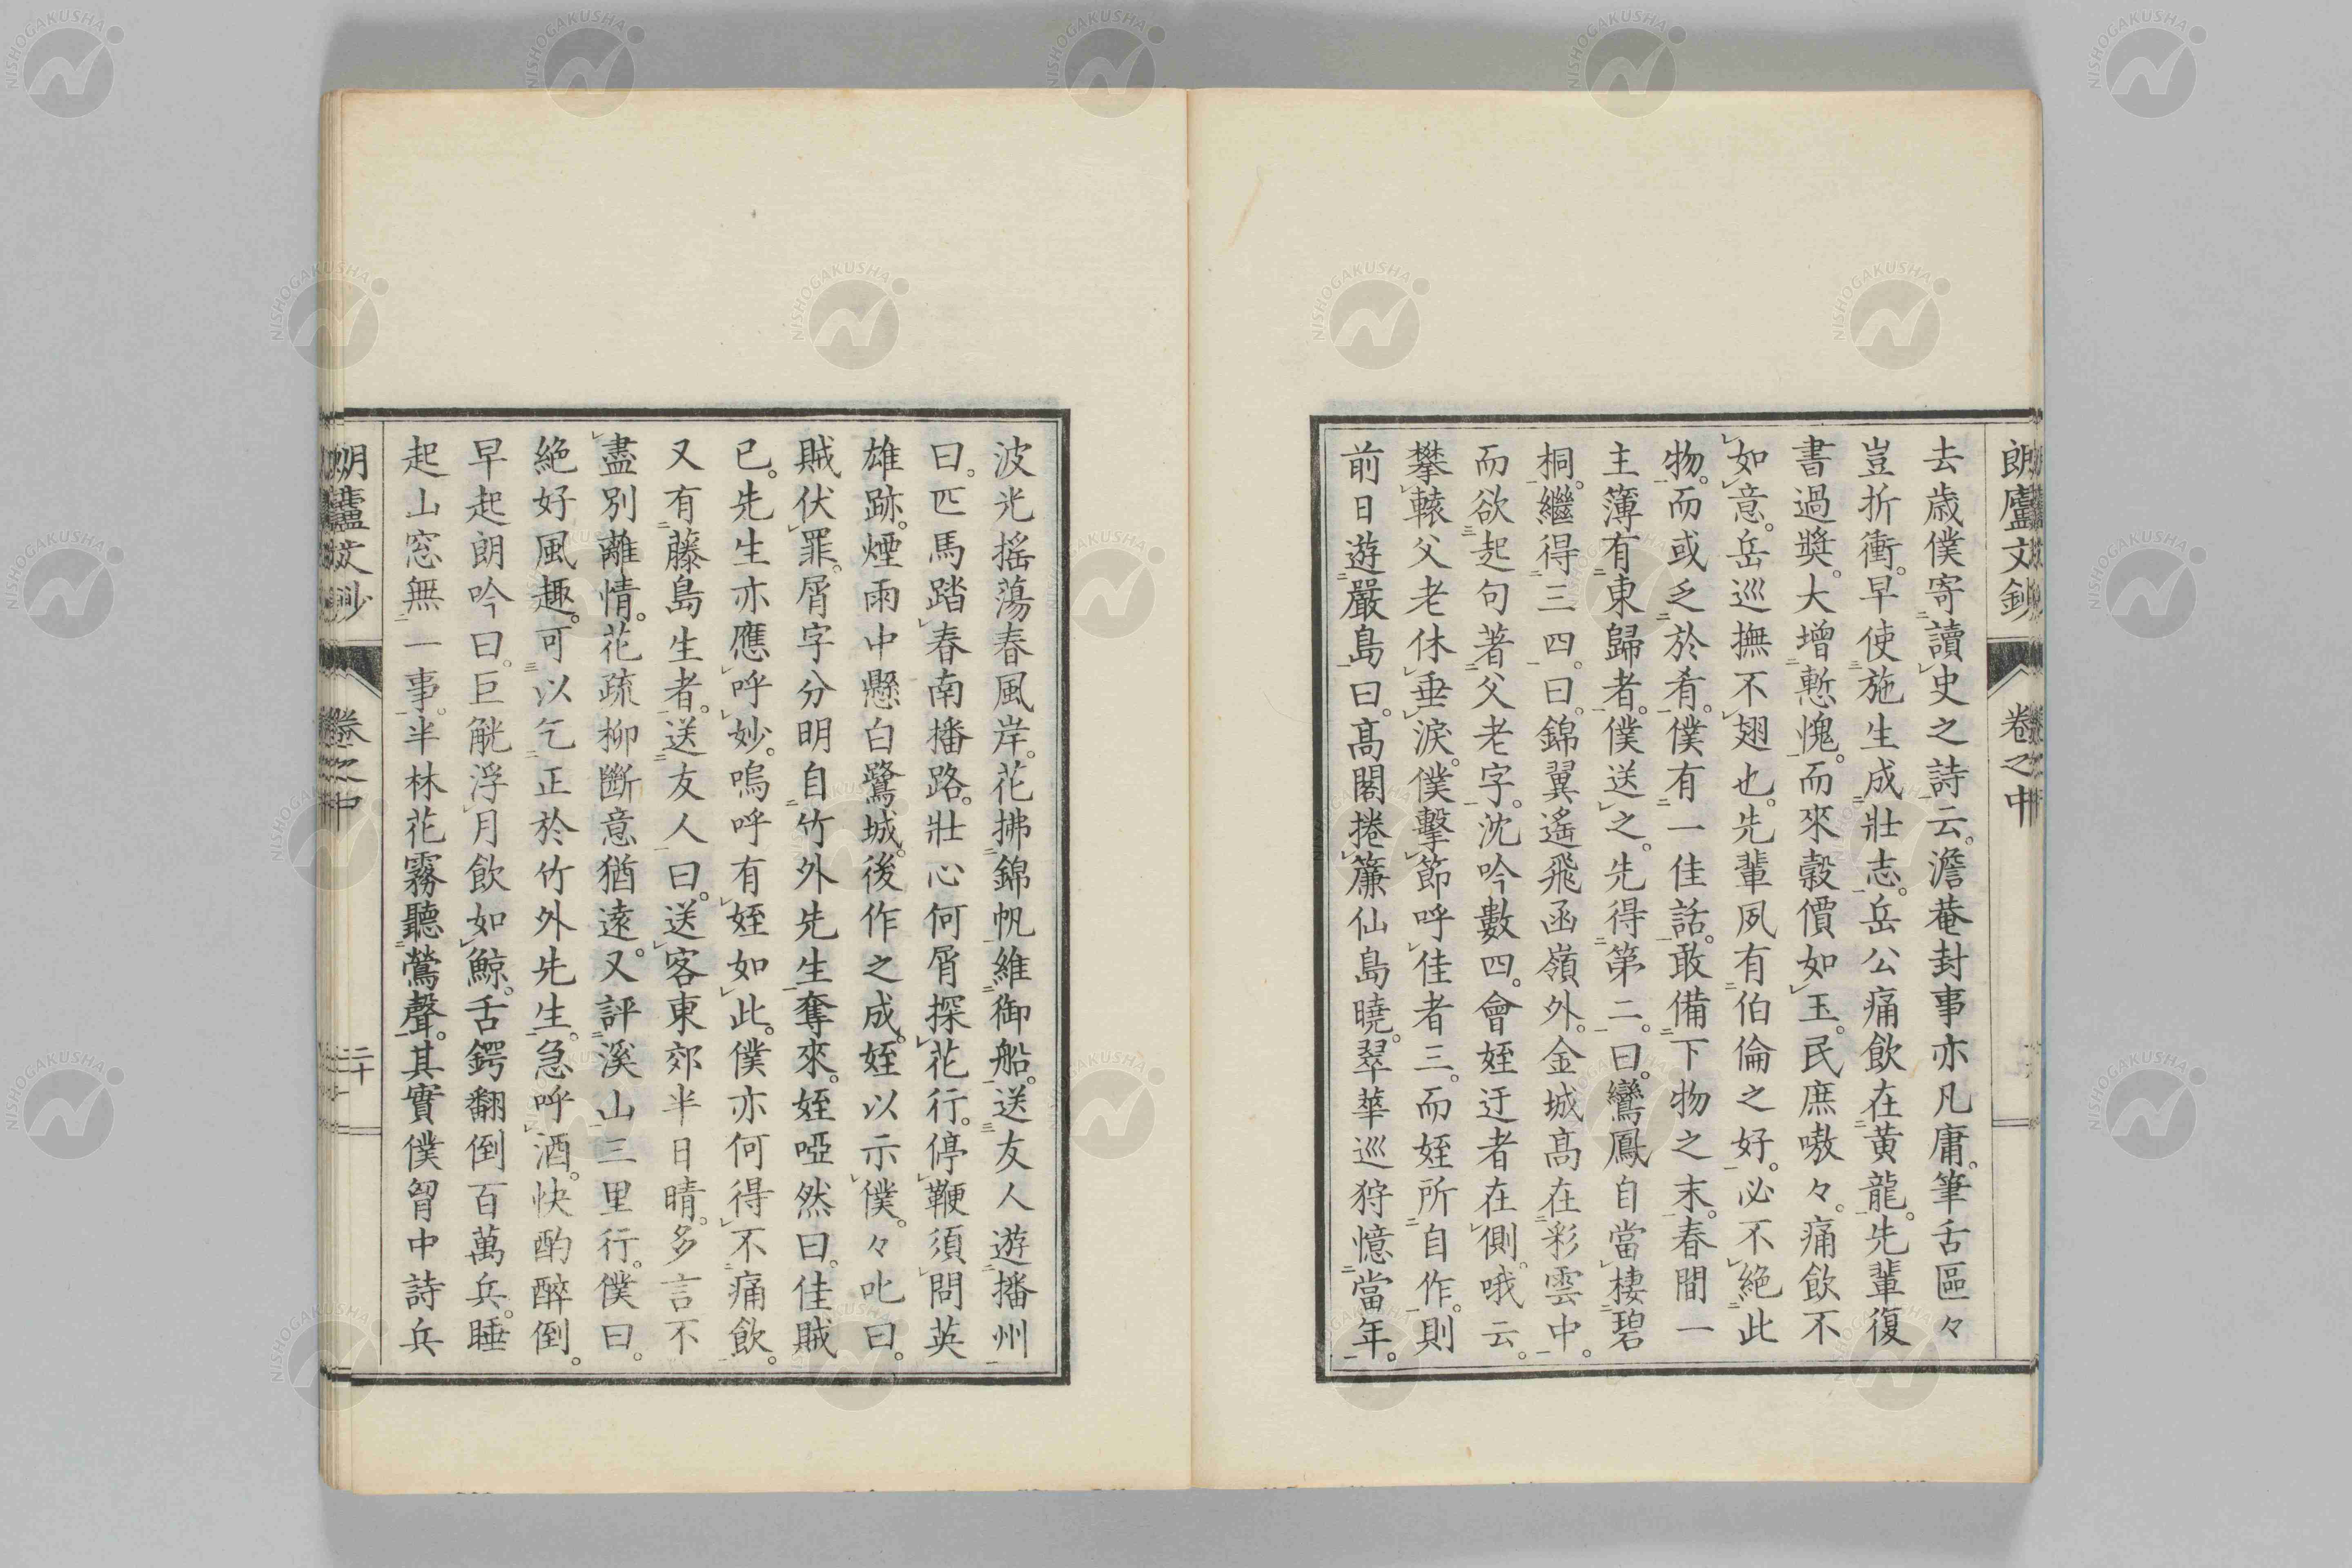 朗廬文鈔 卷之中
去歲僕寄讀史之詩云。澹菴封事亦凡庸。筆舌區々
豈折衝。早使施生成壯志。岳公痛飲在黄龍。先輩復
書過奬。大增慙愧。而來穀價如玉。民庶嗷々。痛飲不
如意。岳巡撫不翅也。先輩夙有伯倫之好。必不絕此
物。而或乏於肴。僕有一佳話。敢備下物之末。春間一
主簿有東歸者。僕送之。先得第二。曰。鸞鳳自當棲碧
桐。繼得三四。曰。錦翼遙飛函嶺外。金城髙在彩雲中。
而欲起句著父老字。沈吟數四。會姪迂者在側。哦云。
攀轅父老休垂淚。僕擊節呼佳者三。而姪所自作。則
前日遊嚴島曰。髙閣捲簾仙島曉。翠華巡狩憶當年。
波光摇蕩春風岸。花拂錦帆維御船。送友人遊播州
曰。匹馬踏春南播路。壯心何屑探花行。停鞭須問英
雄跡。煙雨中懸白鷺城。後作之成。姪以示僕。々叱曰。
賊伏罪。屑字分明自竹外先生奪來。姪啞然曰。佳賊
已。先生亦應呼妙。嗚呼有姪如此。僕亦何得不痛飲。
又有藤島生者。送友人曰。送客東郊半日晴。多言不
盡別離情。花疏柳斷意猶遠。又評溪山三里行。僕曰。
絕好風趣。可以乞正於竹外先生。急呼酒。快酌醉倒。
早起朗吟曰。巨觥浮月飲如鯨。舌鍔翻倒百萬兵。睡
起山窓無一事。半林花霧聽鶯聲。其實僕胷中詩兵
朗廬文鈔 卷之中 二十